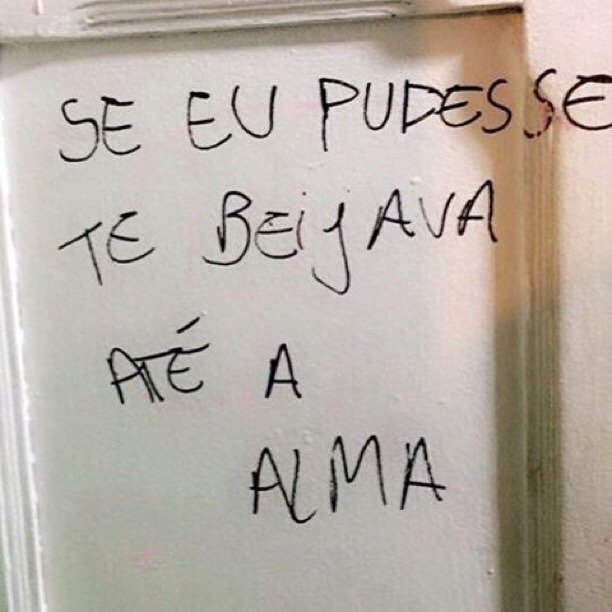 SE EU PUDESSE
TE BEIJAVA
ATÉ A
ALMA